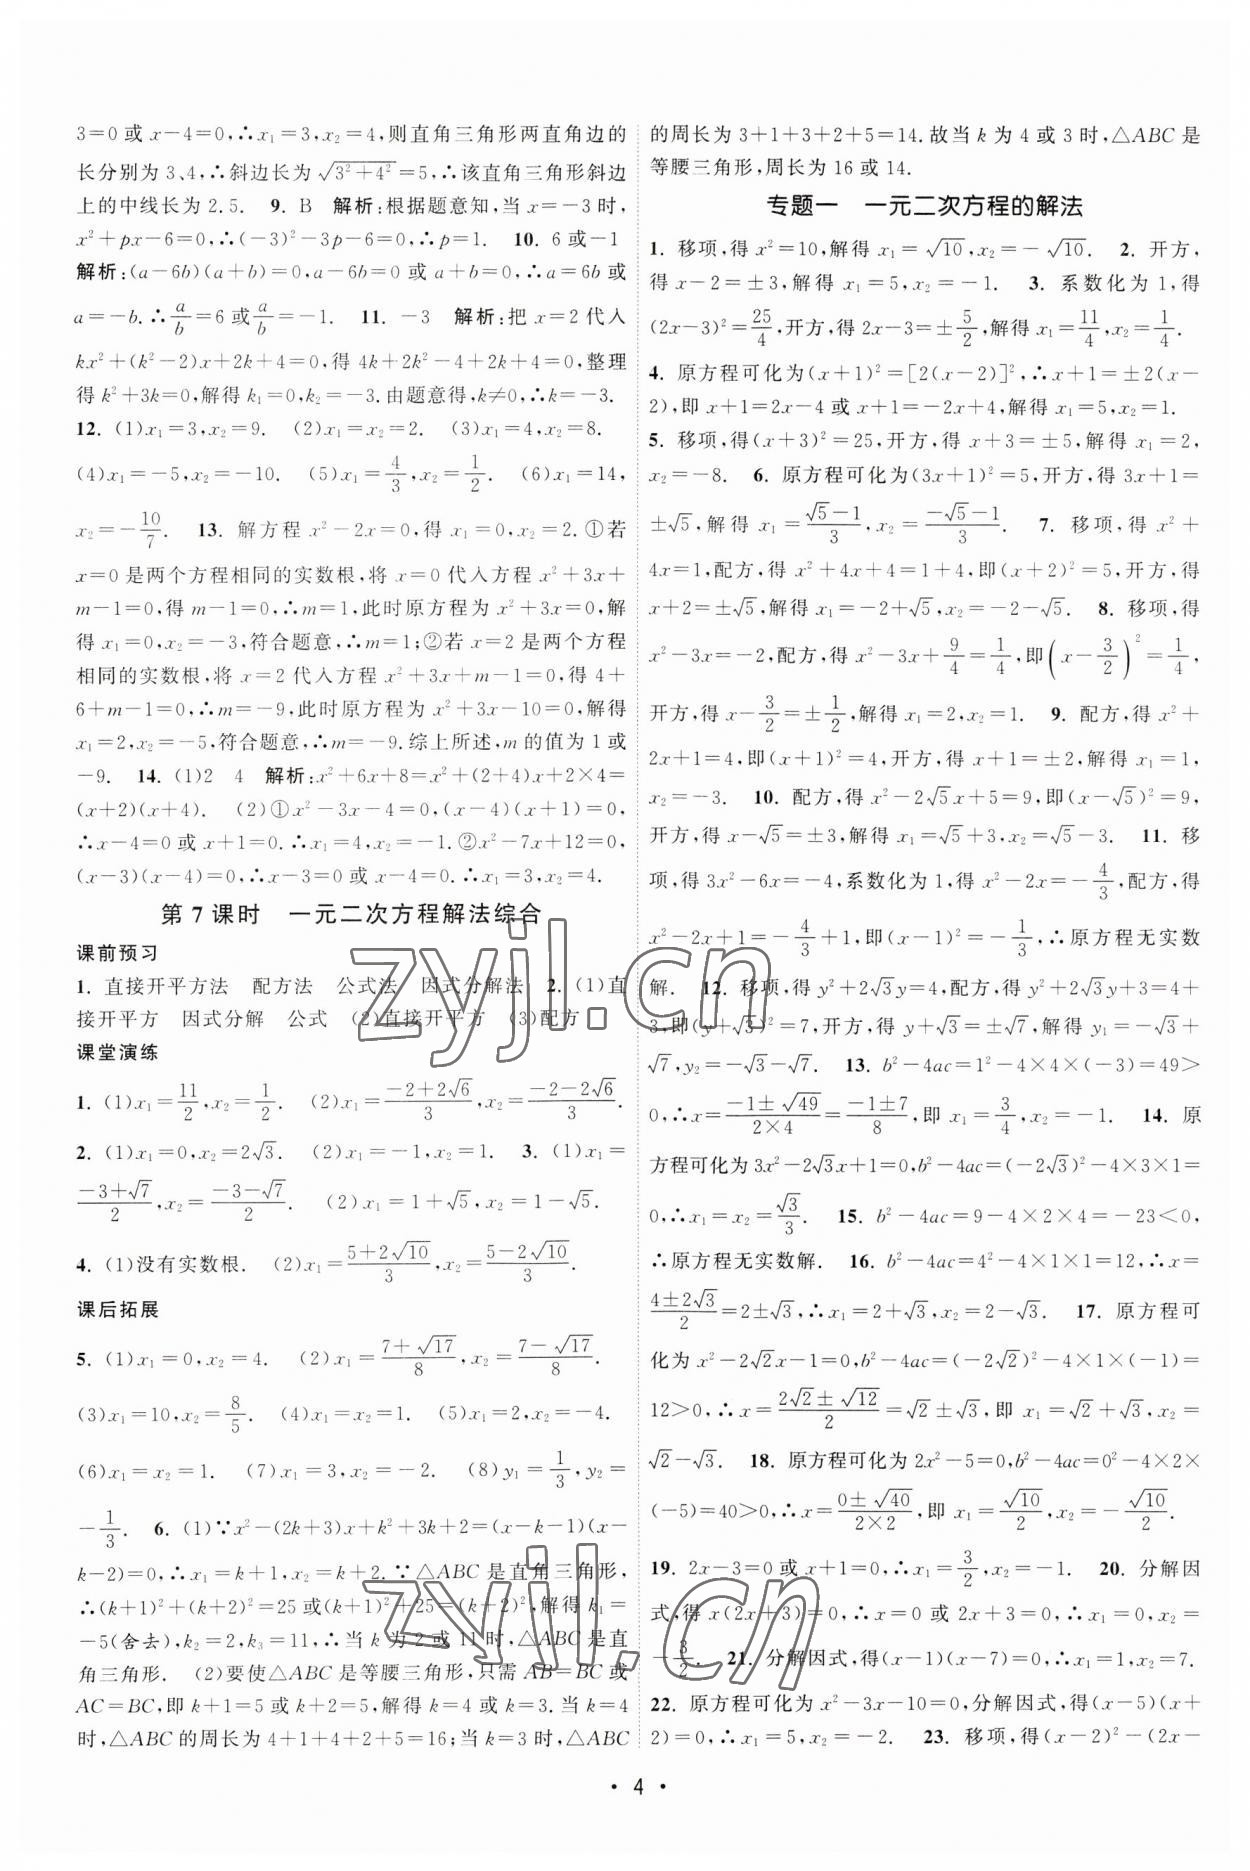 3=0 或 x-4=0,∴x₁=3,x₂=4,则直角三角形两直角边的
长分别为 3、4,∴斜边长为√(3²+4²)=5,∴该直角三角形斜边
上的中线长为 2.5. 9. B 解析:根据题意知,当 x=-3 时,
x²+px-6=0,∴(-3)²-3p-6=0,∴p=1. 10. 6 或-1
解析:(a-6b)(a+b)=0,a-6b=0 或 a+b=0,∴a=6b 或
a=-b.∴a/b=6 或a/b=-1. 11. -3 解析:把 x=2 代入
kx²+(k²-2)x+2k+4=0,得 4k+2k²-4+2k+4=0,整理
得 k²+3k=0,解得 k₁=0,k₂=-3.由题意得,k≠0,∴k=-3.
12. (1)x₁=3,x₂=9. (2)x₁=x₂=2. (3)x₁=4,x₂=8.
(4)x₁=-5,x₂=-10. (5)x₁=4/3,x₂=1/2. (6)x₁=14,
x₂=-10/7. 13. 解方程 x²-2x=0,得 x₁=0,x₂=2.①若
x=0 是两个方程相同的实数根,将 x=0 代入方程 x²+3x+
m-1=0,得 m-1=0,∴m=1,此时原方程为 x²+3x=0,解
得 x₁=0,x₂=-3,符合题意,∴m=1;②若 x=2 是两个方程
相同的实数根,将 x=2 代入方程 x²+3x+m-1=0,得 4+
6+m-1=0,∴m=-9,此时原方程为 x²+3x-10=0,解得
x₁=2,x₂=-5,符合题意,∴m=-9.综上所述,m 的值为 1 或
-9. 14. (1)2 4 解析:x²+6x+8=x²+(2+4)x+2×4=
(x+2)(x+4). (2)①x²-3x-4=0,(x-4)(x+1)=0,
∴x-4=0 或 x+1=0.∴x₁=4,x₂=-1.②x²-7x+12=0,
(x-3)(x-4)=0,∴x-3=0 或 x-4=0.∴x₁=3,x₂=4.
第 7 课时 一元二次方程解法综合
课前预习
1. 直接开平方法 配方法 公式法 因式分解法 2. (1)直
接开平方 因式分解 公式 (2)直接开平方 (3)配方
课堂演练
1. (1)x₁=11/2,x₂=1/2. (2)x₁=(-2+2√6)/3,x₂=(-2-2√6)/3.
2. (1)x₁=0,x₂=2√3. (2)x₁=-1,x₂=1. 3. (1)x₁=
(-3+√7)/2,x₂=(-3-√7)/2. (2)x₁=1+√5,x₂=1-√5.
4. (1)没有实数根. (2)x₁=(5+2√10)/3,x₂=(5-2√10)/3.
课后拓展
5. (1)x₁=0,x₂=4. (2)x₁=(7+√17)/8,x₂=(7-√17)/8.
(3)x₁=10,x₂=8/5. (4)x₁=x₂=1. (5)x₁=2,x₂=-4.
(6)x₁=x₂=1. (7)x₁=3,x₂=-2. (8)y₁=1/3,y₂=
-1/3. 6. (1)∵x²-(2k+3)x+k²+3k+2=(x-k-1)(x-
k-2)=0,∴x₁=k+1,x₂=k+2.∵△ABC 是直角三角形,
∴(k+1)²+(k+2)²=25 或(k+1)²+25=(k+2)²,解得 k₁=
-5(舍去),k₂=2,k₃=11,∴当 k 为 2 或 11 时,△ABC 是直
角三角形. (2)要使△ABC 是等腰三角形,只需 AB=BC 或
AC=BC,即 k+1=5 或 k+2=5,解得 k=4 或 k=3.当 k=4
时,△ABC 的周长为 4+1+4+2+5=16;当 k=3 时,△ABC
的周长为 3+1+3+2+5=14.故当 k 为 4 或 3 时,△ABC 是
等腰三角形,周长为 16 或 14.
专题一 一元二次方程的解法
1. 移项,得 x²=10,解得 x₁=√10,x₂=-√10. 2. 开方,
得 x-2=±3,解得 x₁=5,x₂=-1. 3. 系数化为 1,得
(2x-3)²=25/4,开方,得 2x-3=±5/2,解得 x₁=11/4,x₂=1/4.
4. 原方程可化为(x+1)²=[2(x-2)]²,∴x+1=±2(x-
2),即 x+1=2x-4 或 x+1=-2x+4,解得 x₁=5,x₂=1.
5. 移项,得(x+3)²=25,开方,得 x+3=±5,解得 x₁=2,
x₂=-8. 6. 原方程可化为(3x+1)²=5,开方,得 3x+1=
±√5,解得 x₁=(√5-1)/3,x₂=(-√5-1)/3. 7. 移项,得 x²+
4x=1,配方,得 x²+4x+4=1+4,即(x+2)²=5,开方,得
x+2=±√5,解得 x₁=-2+√5,x₂=-2-√5. 8. 移项,得
x²-3x=-2,配方,得 x²-3x+9/4=1/4,即(x-3/2)²=1/4,
开方,得 x-3/2=±1/2,解得 x₁=2,x₂=1. 9. 配方,得 x²+
2x+1=4,即(x+1)²=4,开方,得 x+1=±2,解得 x₁=1,
x₂=-3. 10. 配方,得 x²-2√5x+5=9,即(x-√5)²=9,
开方,得 x-√5=±3,解得 x₁=√5+3,x₂=√5-3. 11. 移
项,得 3x²-6x=-4,系数化为 1,得 x²-2x=-4/3,配方,得
x²-2x+1=-4/3+1,即(x-1)²=-1/3,∴原方程无实数
解. 12. 移项,得 y²+2√3y=4,配方,得 y²+2√3y+3=4+
3,即(y+√3)²=7,开方,得 y+√3=±√7,解得 y₁=-√3+
√7,y₂=-√3-√7. 13. b²-4ac=1²-4×4×(-3)=49>
0,∴x=(-1±√49)/(2×4)=(-1±7)/8,即 x₁=3/4,x₂=-1. 14. 原
方程可化为 3x²-2√3x+1=0,b²-4ac=(-2√3)²-4×3×1=
0,∴x₁=x₂=√3/3. 15. b²-4ac=9-4×2×4=-23<0,
∴原方程无实数解. 16. b²-4ac=4²-4×1×1=12,∴x=
(4±2√3)/2=2±√3,∴x₁=2+√3,x₂=2-√3. 17. 原方程可
化为 x²-2√2x-1=0,b²-4ac=(-2√2)²-4×1×(-1)=
12>0,∴x=(2√2±√12)/2=√2±√3,即 x₁=√2+√3,x₂=
√2-√3. 18. 原方程可化为 2x²-5=0,b²-4ac=0²-4×2×
(-5)=40>0,∴x=(0±√40)/(2×2),即 x₁=√10/2,x₂=-√10/2.
19. 2x-3=0 或 x+1=0,∴x₁=3/2,x₂=-1. 20. 分解因
式,得 x(2x+3)=0,∴x=0 或 2x+3=0,∴x₁=0,x₂=
-3/2. 21. 分解因式,得(x-1)(x-7)=0,∴x₁=1,x₂=7.
22. 原方程可化为 x²-3x-10=0,分解因式,得(x-5)(x+
2)=0,∴x₁=5,x₂=-2. 23. 移项,得(x-2)²-(2x-
· 4 ·
zyjl.cn
zyjl.cn